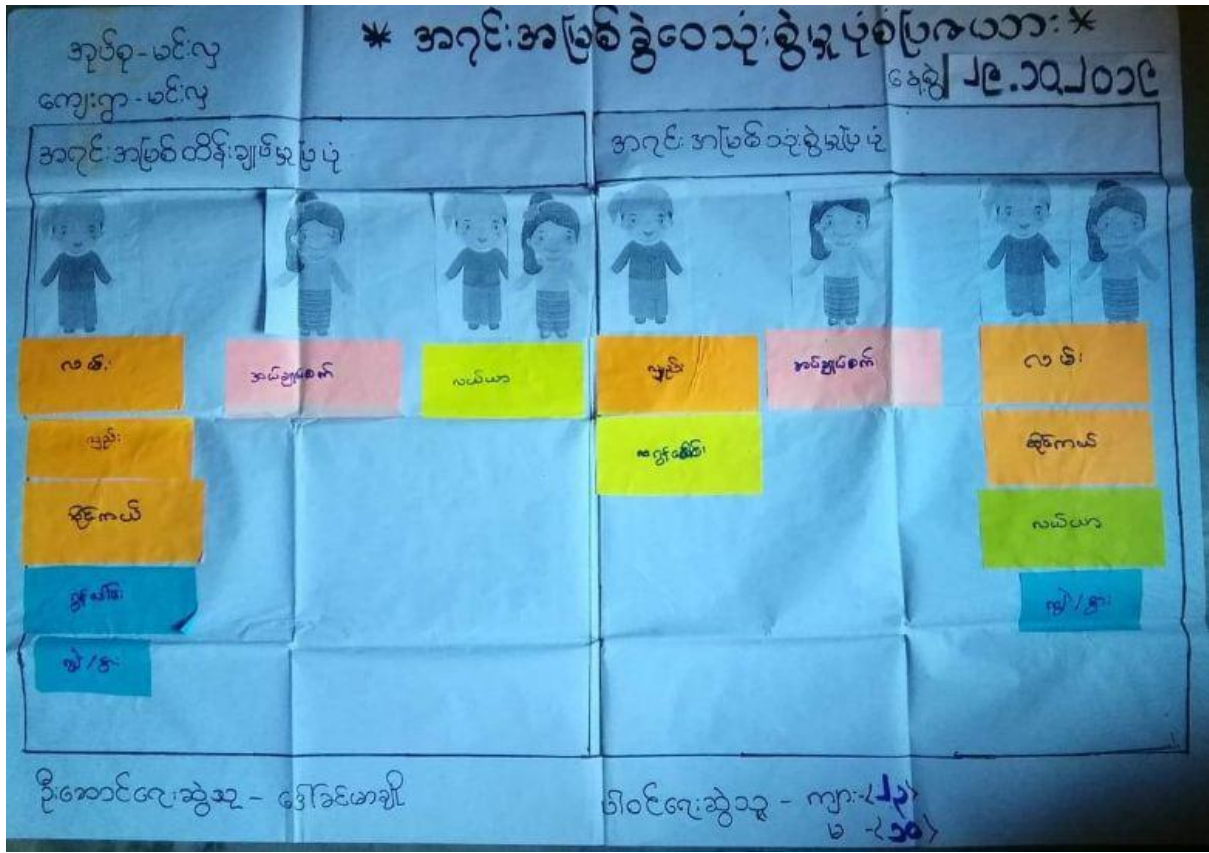 * အရင်းအမြစ်ခွဲဝေသုံးစွဲမှုပုံစံပြဇယား *
အုပ်စု - မင်းလှ
ကျေးရွာ - မင်းလှ
နေ့စွဲ ၂၉.၁၀.၂၀၁၉
အရင်းအမြစ်ထိန်းချုပ်မှုပြပုံ
အရင်းအမြစ်သုံးစွဲမှုပြပုံ
လမ်း
အပ်ချုပ်စက်
လယ်ယာ
လှည်း
အပ်ချုပ်စက်
လမ်း
လှည်း
ဆိုင်ကယ်
ဆိုင်ကယ်
လယ်ယာ
ကျွဲ/နွား
ကျွဲ/နွား
ဦးဆောင်ရေးဆွဲသူ - ဒေါ်ခင်မာချို
ပါဝင်ရေးဆွဲသူ - ကျား-<၂၃>
မ -<၁၀>